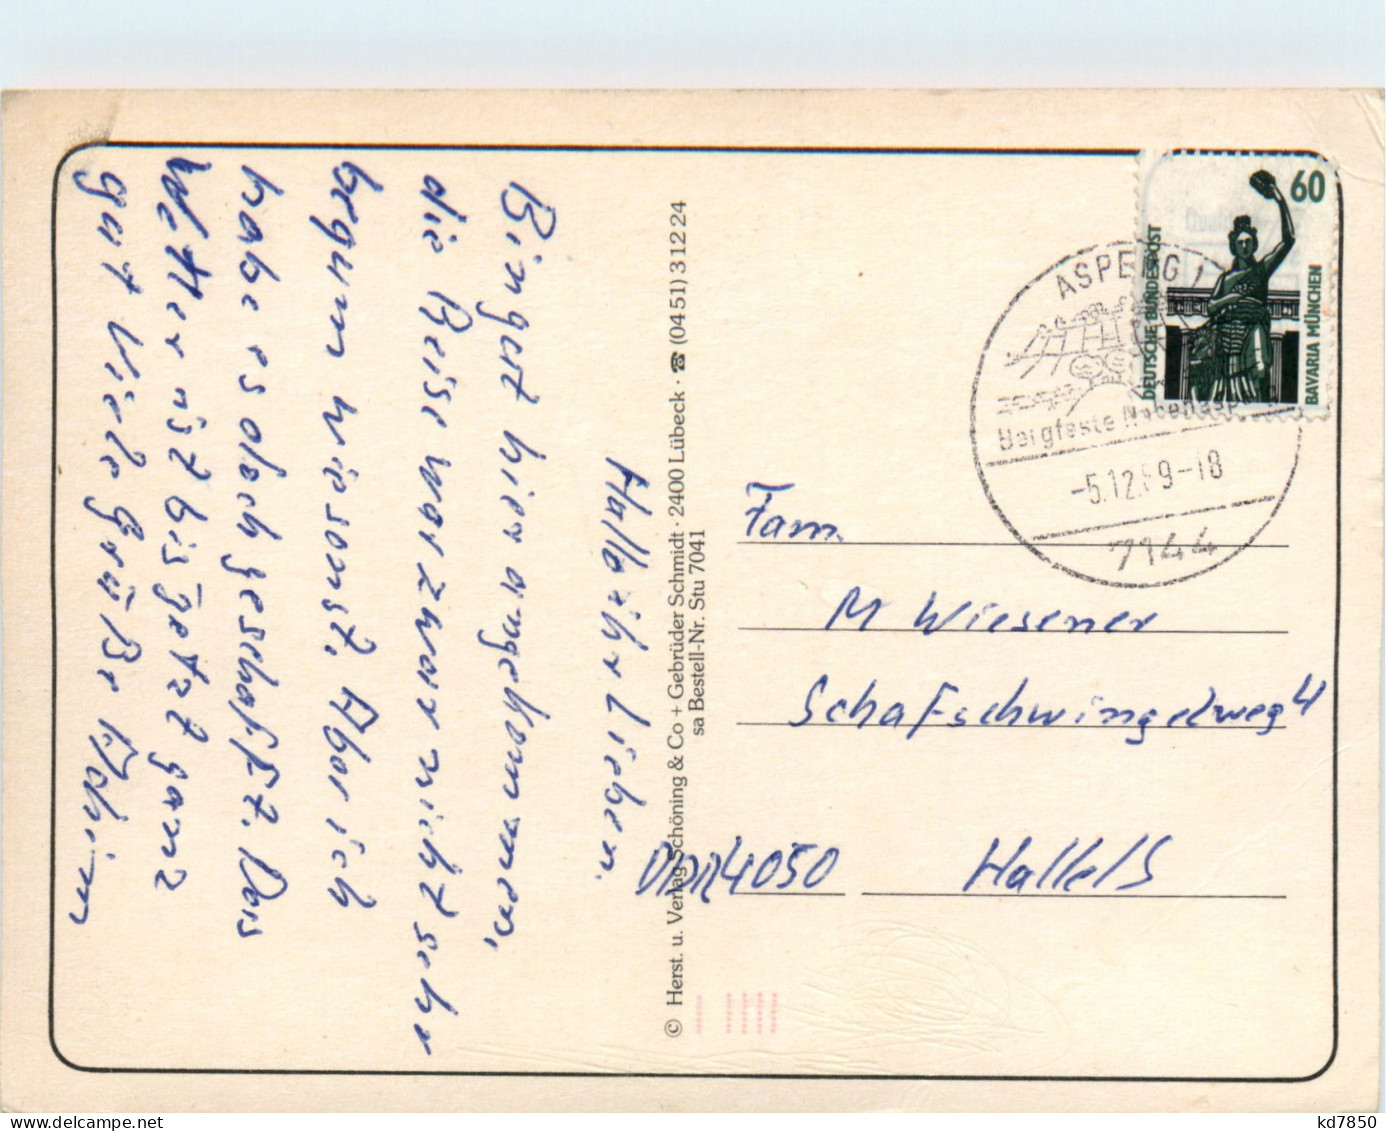 Hallo ihr Lieben.
Bin gut hier angekommen,
die Reise war zwar nicht sehr
begum wie sonst. Aber ich
habe es doch geschafft. Das
Wetter ist bis jetzt ganz
gut Viele Grüße Achim
© Herst. u. Verlag Schöning & Co + Gebrüder Schmidt · 2400 Lübeck · ☎ (04 51) 3 12 24
sa Bestell-Nr. Stu 7041
60
DEUTSCHE BUNDESPOST
BAVARIA MÜNCHEN
ASPERG 1
Bergfeste
-5.12.89-18
7144
Fam.
M Wiesener
Schafschwingelweg 4
DDR 4050 Halle/S
www.delcampe.net
kd7850